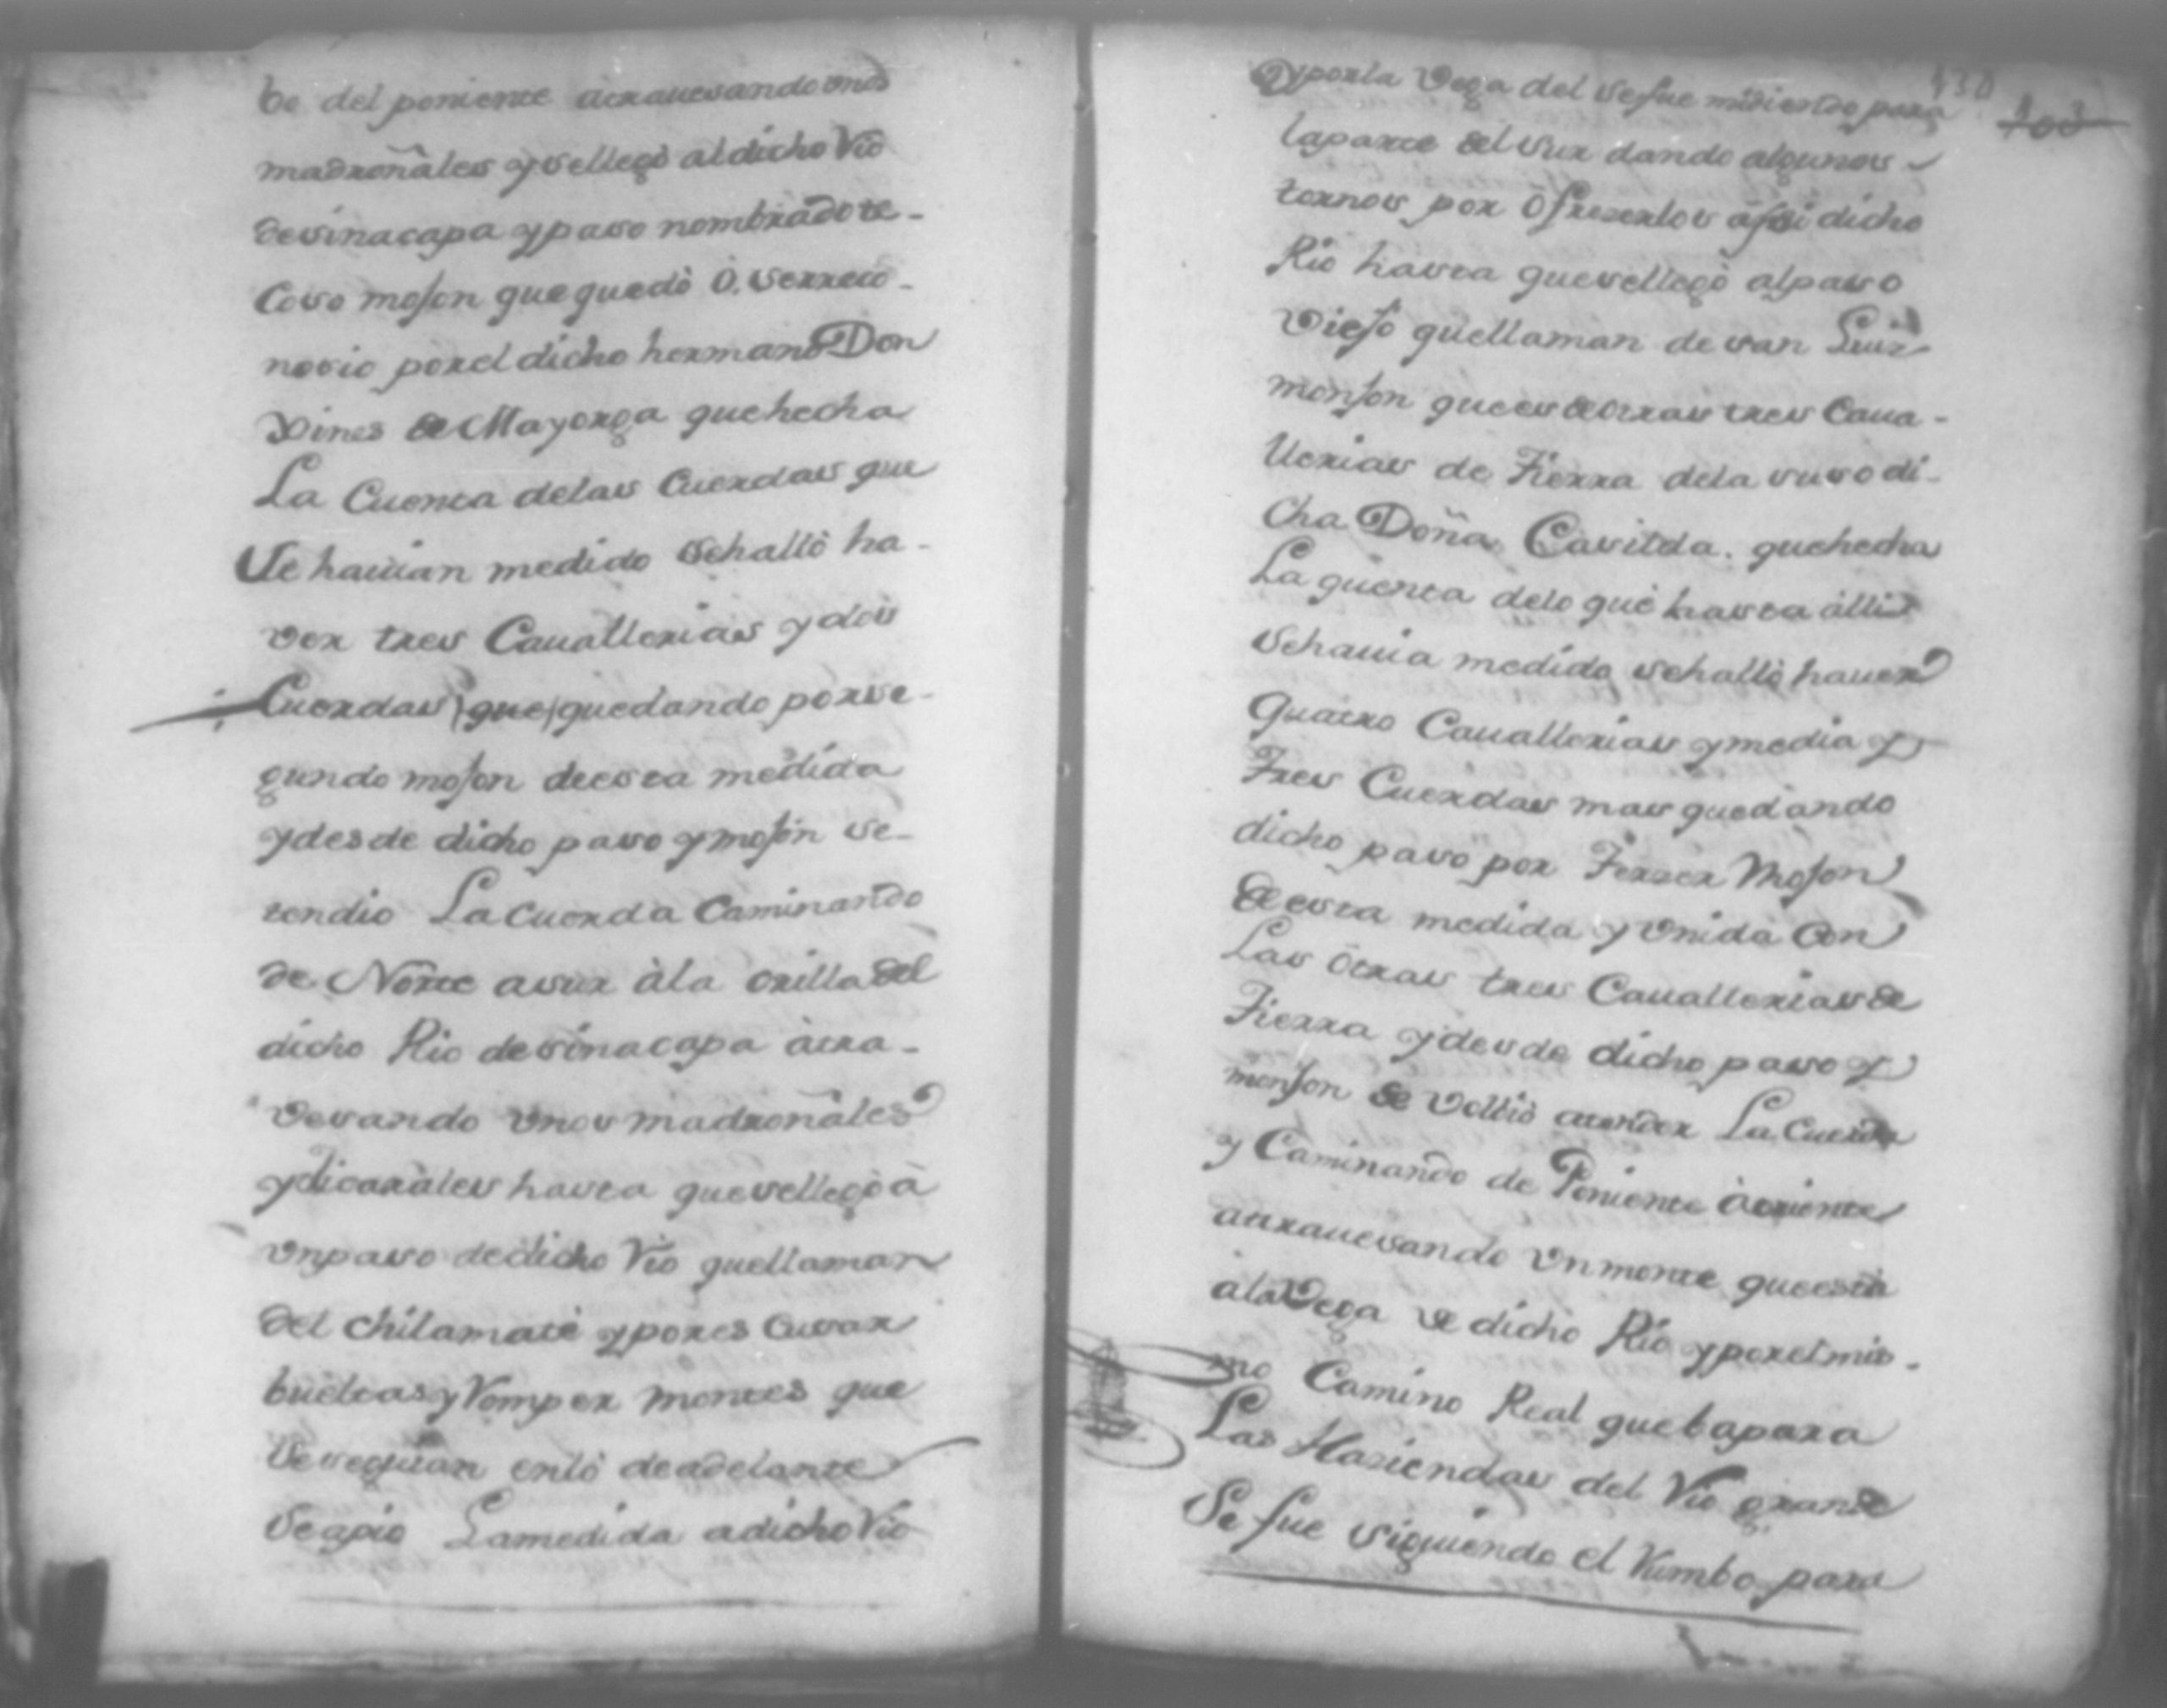 be del poniente atrauesando unos
madroñales y se llegó al dicho Rio
de sinacapa y paso nombrado te-
Coso mojon que quedò
nosio por el dicho hermano Don
Xines de Mayorga que hecha
La Cuenta delas Cuerdas que
Se hauian medido se halló ha-
ver tres Cauallerias y dos
Cuerdas (que) quedando por se-
gundo mojon de esta medida
y desde dicho paso y mojon se-
tendio La Cuerda Caminando
de Norte a sur àla orilla del
dicho Rio de sinacapa àtra-
vesando unos madroñales
y Jicaràles hasta que se llegò à
un paso de dicho Rio que llaman
del chilamate y por escusar
bueltas y Romper montes que
se seguian en lo de adelante
Se apio La medida a dicho Rio
130
103
y por la Vega del se fue midiendo para
la parte del sur dando algunos
tornos por ofreserlos assi dicho
Rio hasta que se llegò al paso
Viejo que llaman de san Luis
monjon que es de otras tres Caua-
llerias de Tierra dela suso di-
cha Doña Casilda. que hecha
La quenta delo que hasta alli
Se hauia medido se hallò hauer
Quatro Cauallerias y media y
Tres Cuerdas mas quedando
dicho paso por Terser Mojon
de esta medida y unida Con
Las otras tres Cauallerias de
Tierra y desde dicho paso y
monjon se Volbiò atender La Cuerda
y Caminando de Poniente à oriente
atrauesando Un monte que está
a la Vega de dicho Rio y por el mis-
mo Camino Real que ba para
Las Haziendas del Rio grande
Se fue siguiendo el Rumbo para